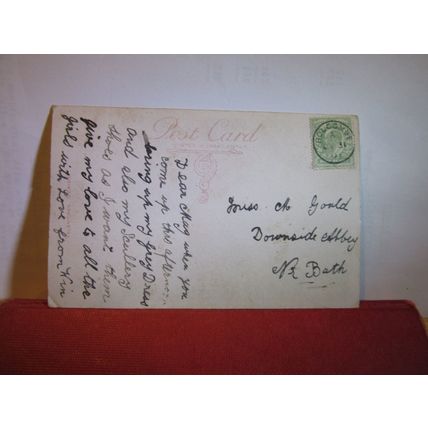 Post Card
Dear May when you
come up this afternoon
bring up my grey Dress
and also my Scullery
shoes as I want them
give my love to all the
girls with love from Win
Miss. M Gould
Downside Abbey
Nr Bath
HOLCOMBE